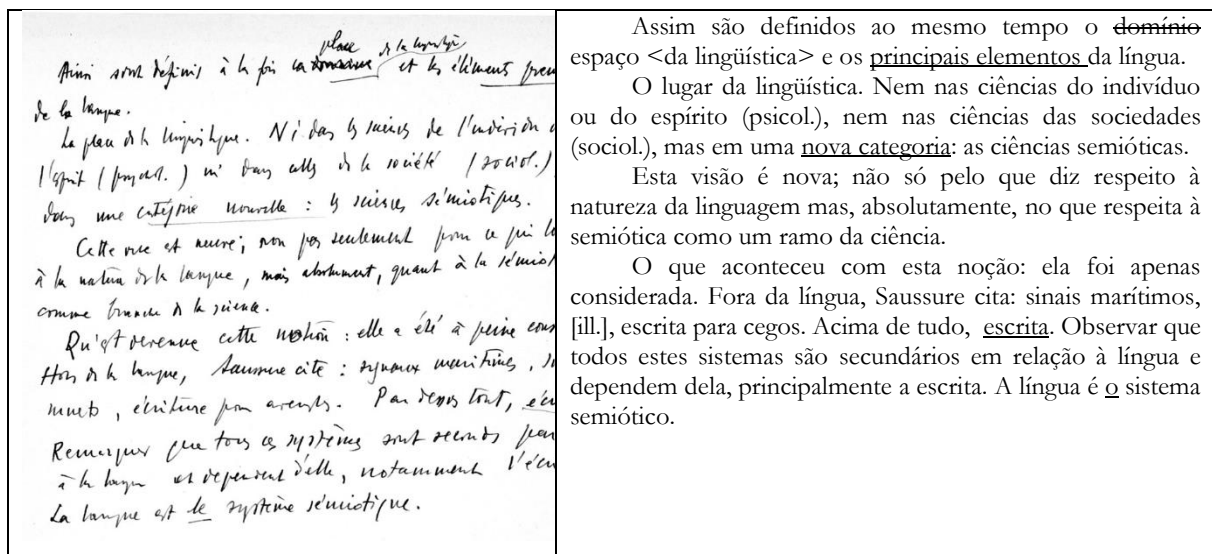 place de la linguistiq
Ainsi sont définis à la fois la domaine et les éléments prem
de la langue.
La place de la linguistique. Ni dans les sciences de l'individu
l'esprit (psychol.) ni dans celles de la société (sociol.)
dans une catégorie nouvelle : les sciences sémiotiques.
Cette vue est neuve ; non pas seulement pour ce qui
à la nature de la langue, mais absolument, quant à la sémiot
comme branche de la science.
Qu'est devenue cette notion : elle a été à peine cons
Hors de la langue, Saussure cite : signaux maritimes,
muets, écriture pour aveugles. Par dessus tout, écri
Remarquer que tous ces systèmes sont seconds par
à la langue et dépendent d'elle, notamment l'écri
La langue est le système sémiotique.
Assim são definidos ao mesmo tempo o domínio
espaço <da lingüística> e os principais elementos da língua.
O lugar da lingüística. Nem nas ciências do indivíduo
ou do espírito (psicol.), nem nas ciências das sociedades
(sociol.), mas em uma nova categoria: as ciências semióticas.
Esta visão é nova; não só pelo que diz respeito à
natureza da linguagem mas, absolutamente, no que respeita à
semiótica como um ramo da ciência.
O que aconteceu com esta noção: ela foi apenas
considerada. Fora da língua, Saussure cita: sinais marítimos,
[ill.], escrita para cegos. Acima de tudo, escrita. Observar que
todos estes sistemas são secundários em relação à língua e
dependem dela, principalmente a escrita. A língua é o sistema
semiótico.